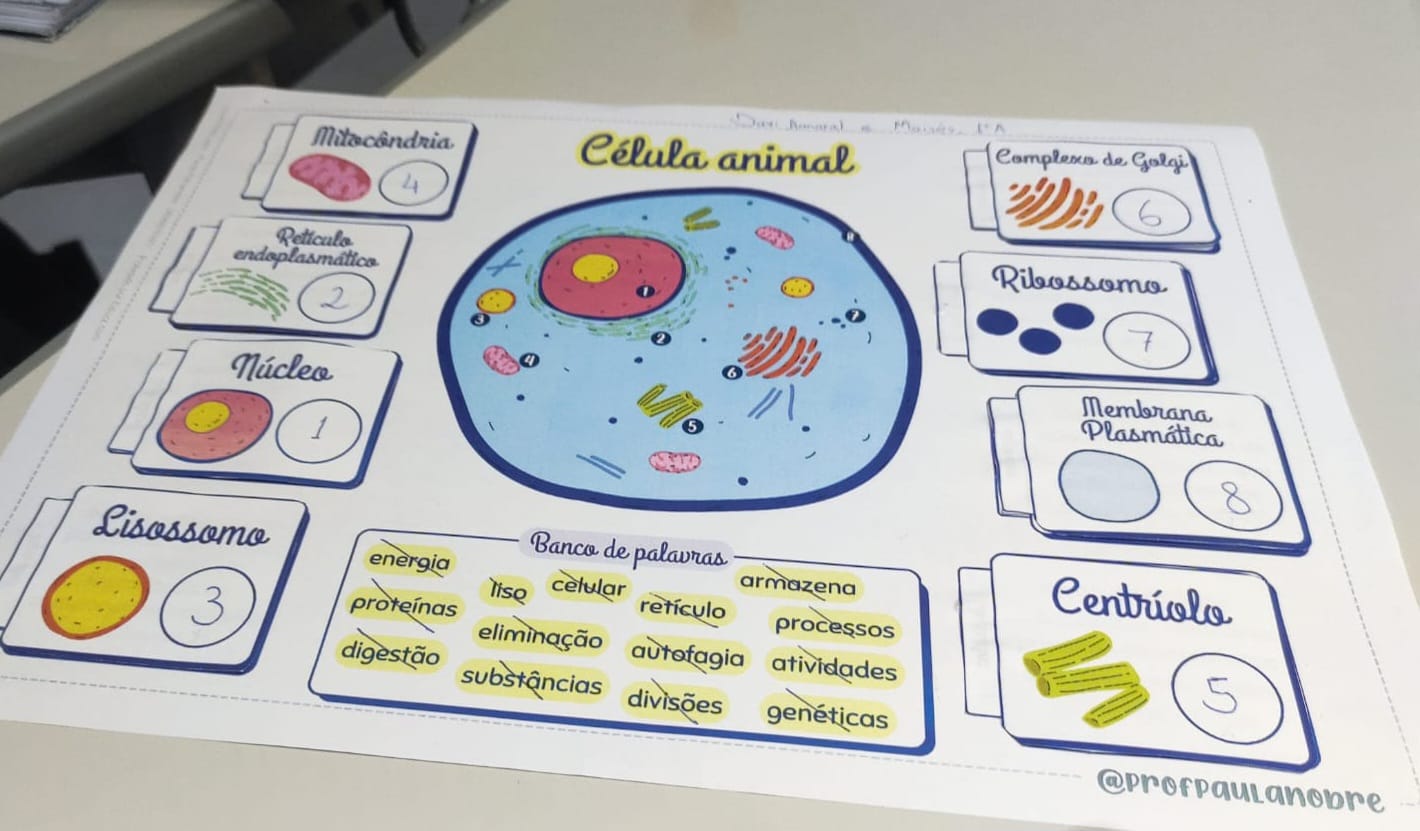 Davi Amaral e Moisés 1°A
Célula animal
Mitocôndria
4
Retículo
endoplasmático
2
Núcleo
1
Lisossomo
3
8
1
3
2
7
4
6
5
Complexo de Golgi
6
Ribossomo
7
Membrana
Plasmática
8
Centríolo
5
Banco de palavras
energia
liso
celular
armazena
proteínas
retículo
processos
eliminação
digestão
autofagia
atividades
substâncias
divisões
genéticas
@PROFPAULANOBRE